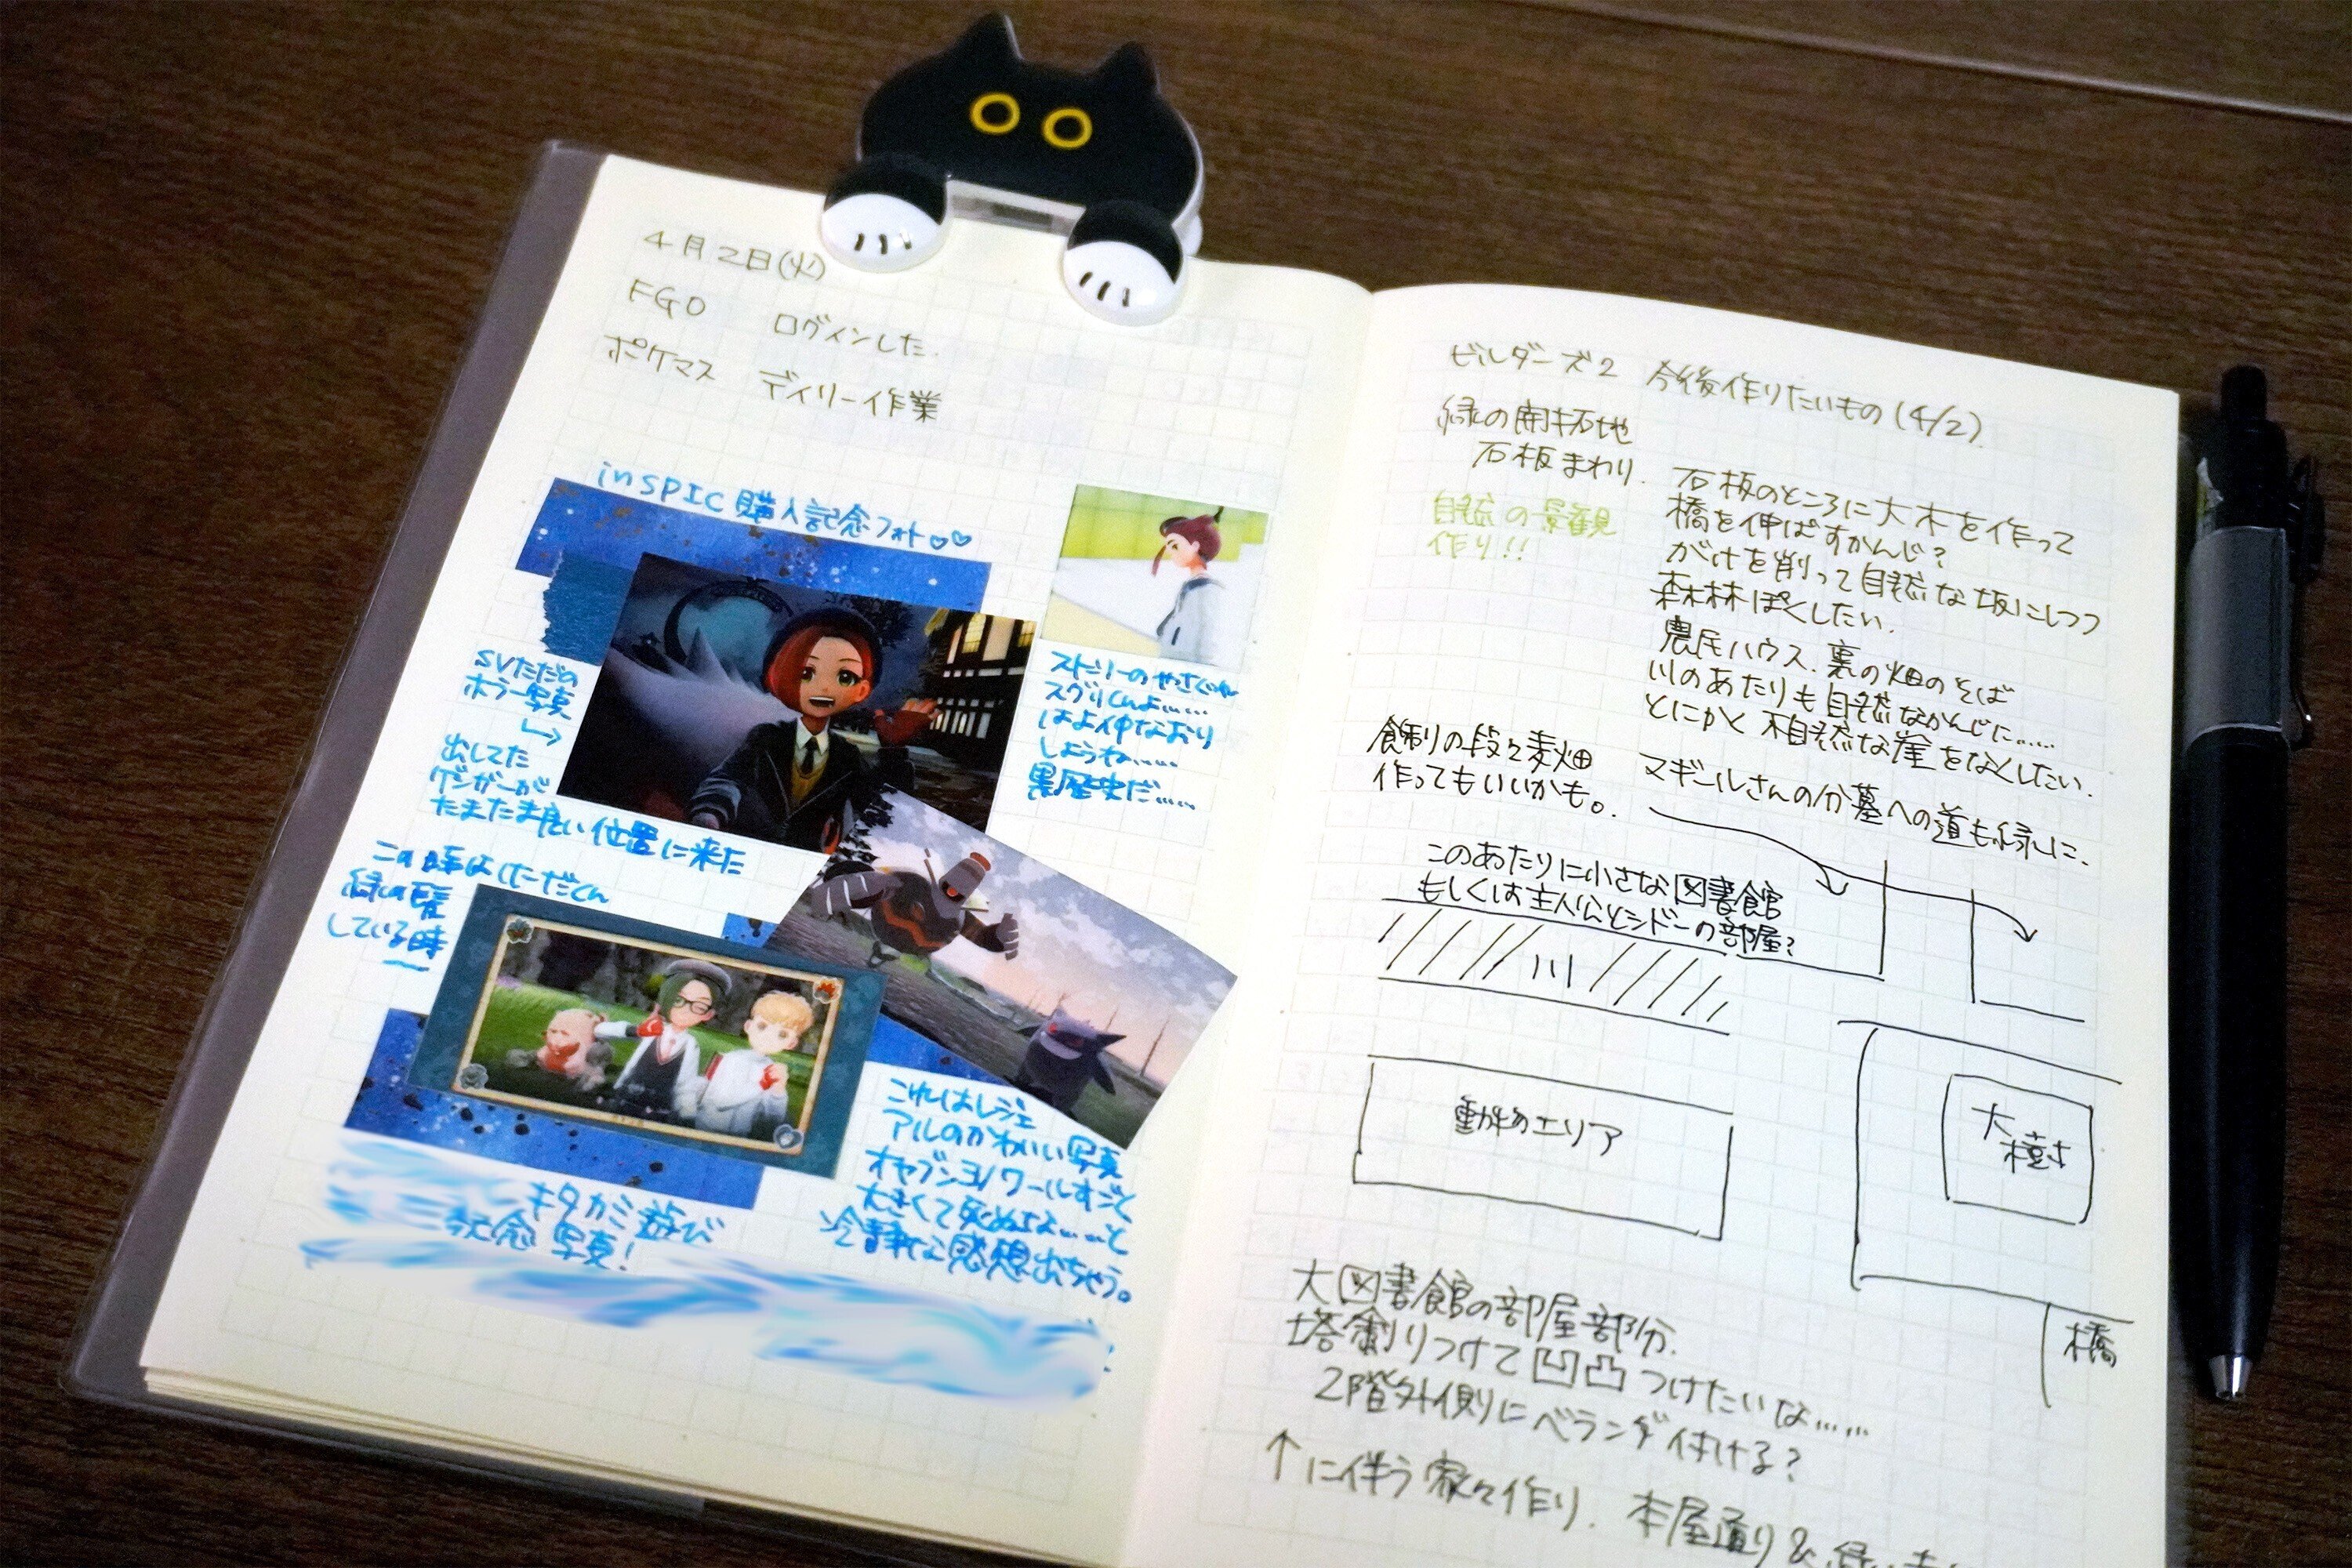 4月2日(火)
FGO ログインした.
ポケマス デイリー作業
inSPIC 購入記念フォト♡♡
SVただの
ホラー写真
↳
出してた
ゲンガーが
たまたま良い位置に来た
ストーリーの
スグリくんよ……
はよ仲なおり
しようね……
黒歴史だ……
この時は
緑の髪
している時
これはレジェ
アルのかわいい写真
オヤブンヨノワールすごく
大きくて死ぬよ……と
冷静な感想出ちゃう。
キタカミ遊び
念 写真!
ビルダーズ2 今後作りたいもの(4/2)
緑の開拓地
石板まわり.
自然の景観
作り!!
石板のところに大木を作って
橋を伸ばすかんじ?
がけを削って自然な坂にしつつ
森林ぽくしたい.
農民ハウス.裏の畑のそば
川のあたりも自然なかんじに……
とにかく不自然な崖をなくしたい.
飾りの段々麦畑
作ってもいいかも。
マギールさんのお墓への道も緑に.
このあたりに小さな図書館
もしくは主人公とシドーの部屋?
動物エリア
大樹
橋
大図書館の部屋部分.
塔創りつけて凹凸つけたいな……
2階外側にベランダ付ける?
↑に伴う家々作り. 本屋通り&